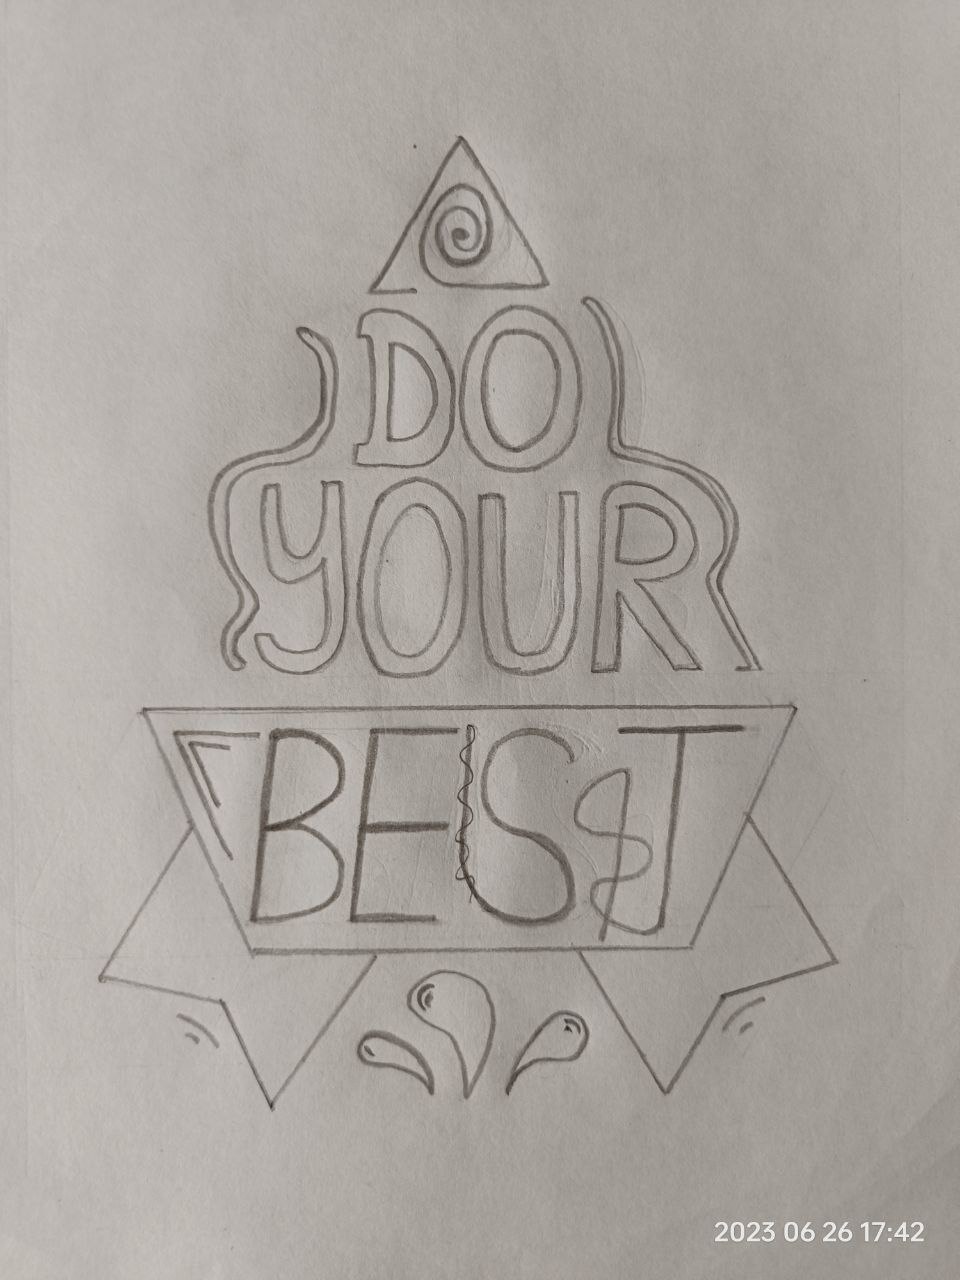 DO
YOUR
BEST
2023 06 26 17:42